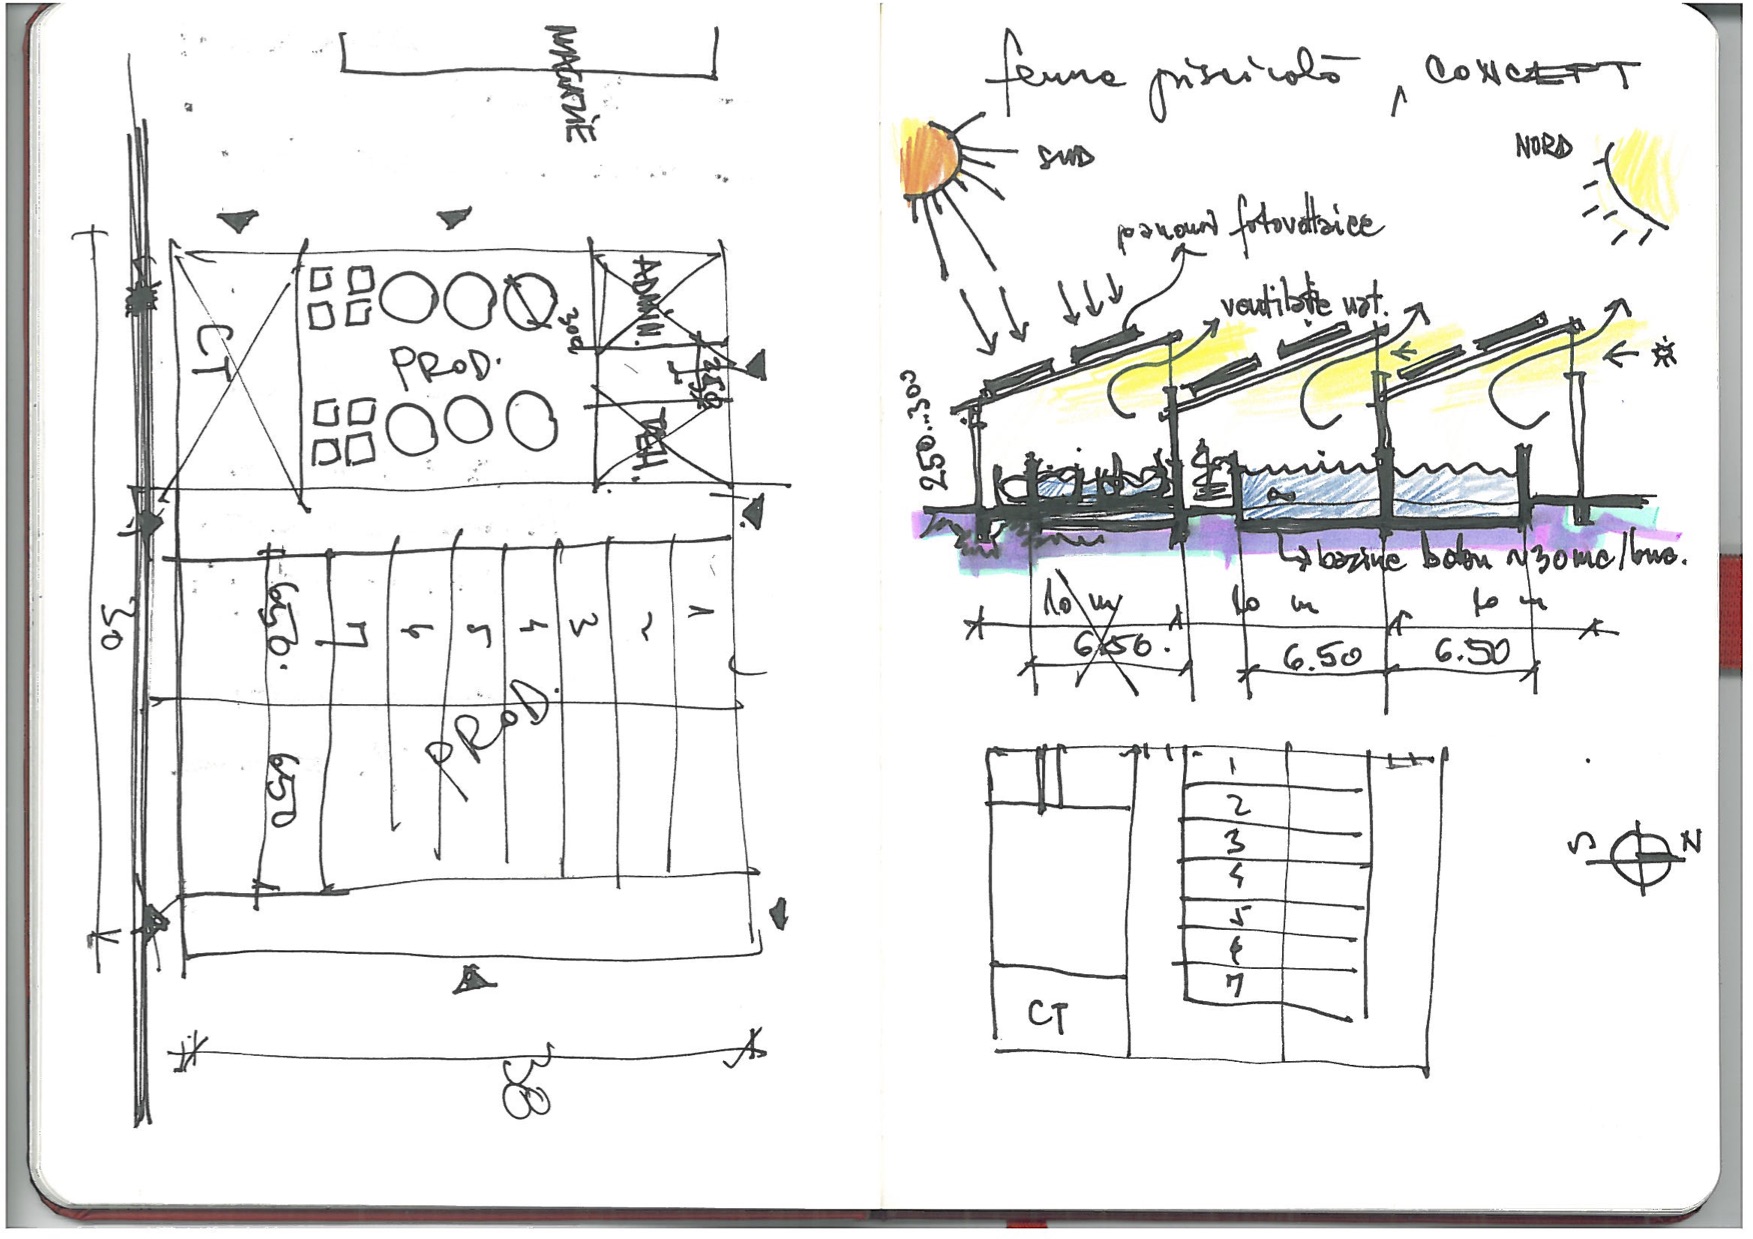 MAGAZIE
ADMIN.
300
PROD.
CT
350
TEH.
30
650.
7
6
5
4
3
2
1
PROD
650
38
ferma piscicolă, CONCEPT
SUD
NORD
panouri fotovoltaice
ventilație nat.
250...300
bazine beton ~30mc/buc.
10 m
10 m
10 m
6.50.
6.50
6.50
1
2
3
4
5
6
7
CT
S
N